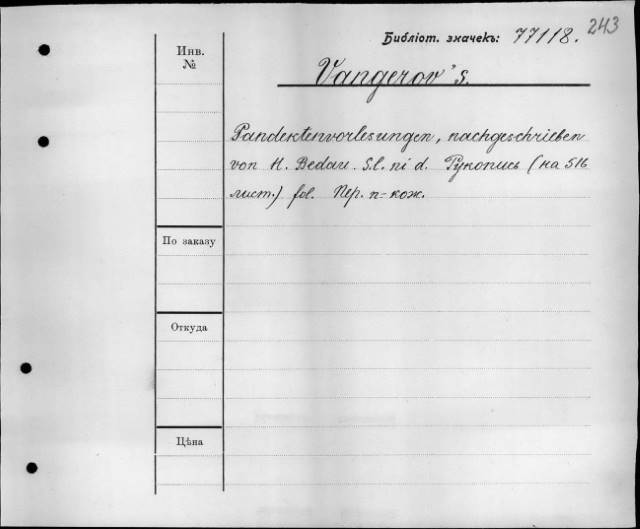 243
Библіот. значекъ: 77118.
Инв.
№
Vangerov's.
Pandektenvorlesungen, nachgeschrieben
von H. Bedau. S.l. ni d. Рукопись (на 516
лист.) fol. Пер. п-кож.
По заказу
Откуда
Цѣна